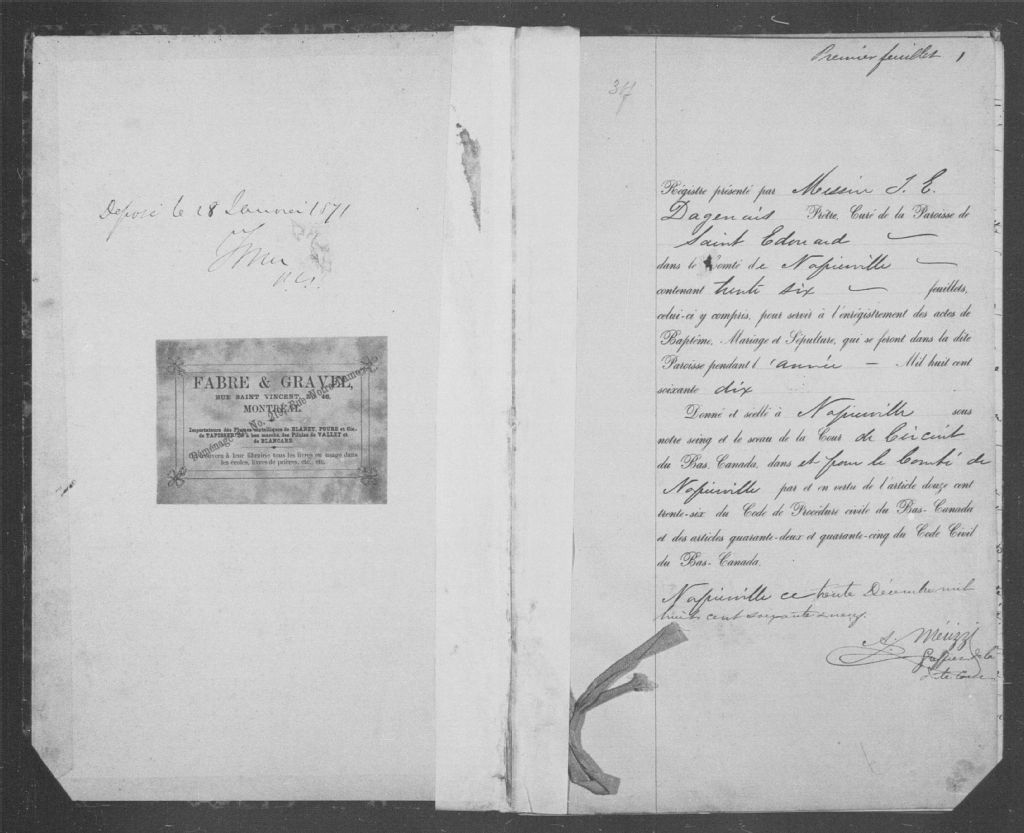 Déposé le 18 Janvier 1871
FABRE & GRAVEL,
RUE SAINT VINCENT,
MONTRÉAL
Déménagé No. 219, Rue Notre-Dame
Importateurs des Plumes métalliques de BLANZY, POURE et Cie.
de TAPISSERIES à bon marché, des Pilules de VALLET et
de BLANCARD.
On trouvera à leur librairie tous les livres en usage dans
les écoles, livres de prières, etc., etc.
Premier feuillet 1
Régistre présenté par Messire J. E.
Dagenais Prêtre, Curé de la Paroisse de
Saint Edouard
dans le Comté de Napierville
contenant trente six feuillets,
celui-ci y compris, pour servir à l'enrégistrement des actes de
Baptême, Mariage et Sépulture, qui se feront dans la dite
Paroisse pendant l'année — Mil huit cent
soixante dix
Donné et scellé à Napierville sous
notre seing et le sceau de la Cour de Circuit
du Bas-Canada, dans et pour le Comté de
Napierville par et en vertu de l'article douze cent
trente-six du Code de Procédure civile du Bas-Canada
et des articles quarante-deux et quarante-cinq du Code Civil
du Bas-Canada.
Napierville ce trente Décembre mil
huit cent soixante & neuf.
A. Merizzi
Greffier de la
dite Cour